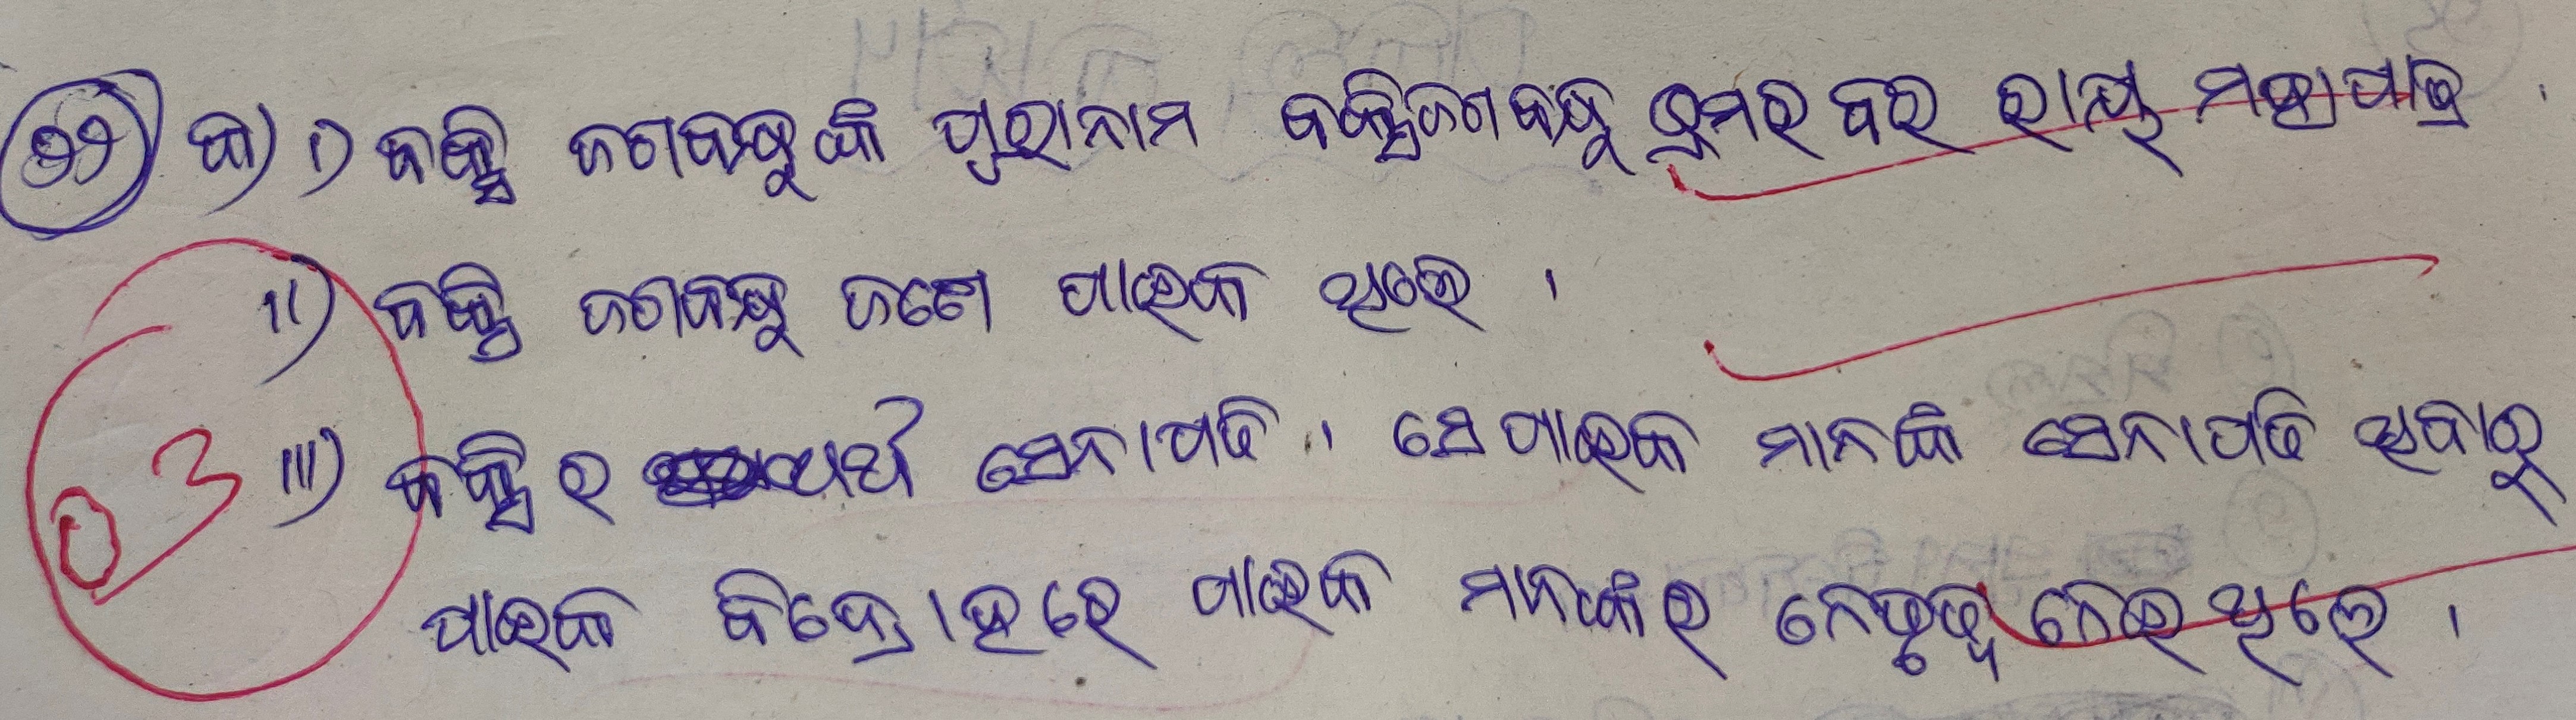 ୨୨ କ) i) ବକ୍ସି ଜଗବନ୍ଧୁଙ୍କ ପୁରାନାମ ବକ୍ସିଜଗବନ୍ଧୁ ଭ୍ରମରବର ରାୟ ମହାପାତ୍ର ।
ii) ବକ୍ସି ଜଗବନ୍ଧୁ ଜଣେ ପାଇକ ଥିଲେ ।
iii) ବକ୍ସିର ଅର୍ଥ ସେନାପତି । ସେ ପାଇକ ମାନଙ୍କ ସେନାପତି ଥିବାରୁ
03
ପାଇକ ବିଦ୍ରୋହରେ ପାଇକ ମାନଙ୍କର ନେତୃତ୍ୱ ନେଇଥିଲେ ।